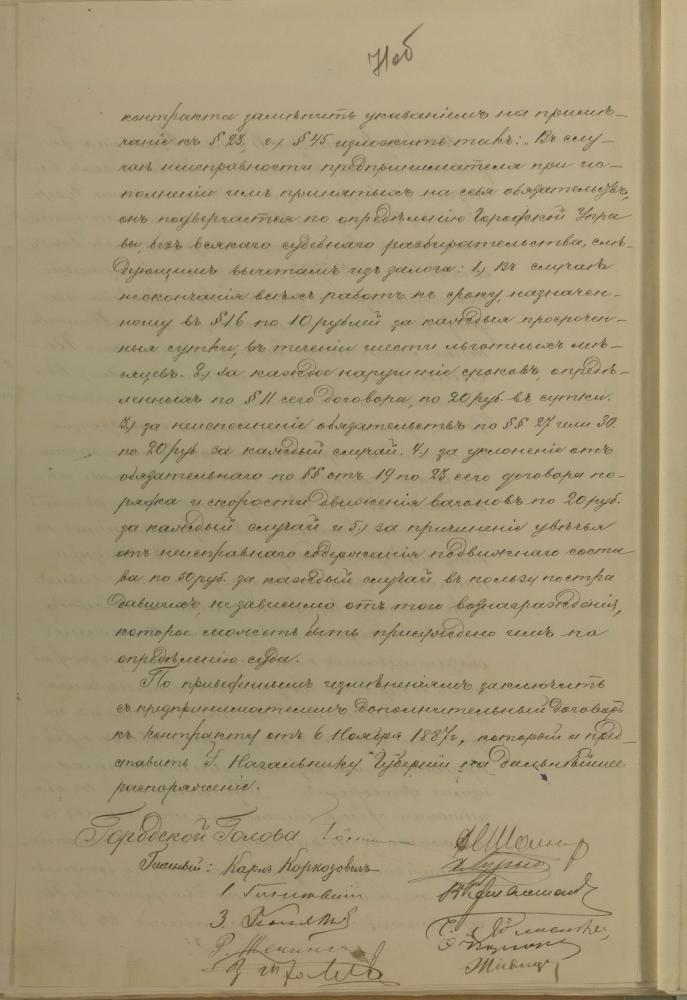 71об
контракта замѣнить указаніемъ на примѣ-
чаніе къ § 23, г.) § 45 изложить такъ: „Въ слу-
чаѣ неисправности предпринимателя при ис-
полненіи имъ принятыхъ на себя обязательствъ,
онъ подвергается по опредѣленію Городской Упра
вы, безъ всякаго судебнаго разбирательства, слѣ-
дующимъ вычетамъ изъ залога: 1.) Въ случаѣ
неокончанія всѣхъ работъ къ сроку назначен-
ному въ § 16 по 10 рублей за каждыя просрочен-
ныя сутки, въ теченіи шести льготныхъ мѣ-
сяцевъ. 2.) за каждое нарушеніе сроковъ, опредѣ-
ленныхъ по § 11 сего договора, по 20 руб. въ сутки.
3.) за неисполненіе обязательствъ по §§ 27 или 30.
по 20 руб. за каждый случай. 4.) за уклоненіе отъ
обязательнаго по §§ отъ 19 по 23 сего договора по-
рядка и скорости движенія вагоновъ по 20 руб.
за каждый случай и 5.) за причиненіе увѣчья
отъ неисправнаго содержанія подвижнаго соста
ва по 50 руб. за каждый случай въ пользу постра
давшихъ, независимо отъ того вознагражденія,
которое можетъ быть присуждено имъ по
опредѣленію суда.
По приведеннымъ измѣненіямъ заключить
съ предпринимателемъ дополнительный договоръ
къ контракту отъ 6 Ноября 1887 г., который и пред-
ставить Г. Начальнику Губерніи на дальнѣйшее
распоряженіе.
Городской Голова
Гласный: Карлъ Коркозовичъ